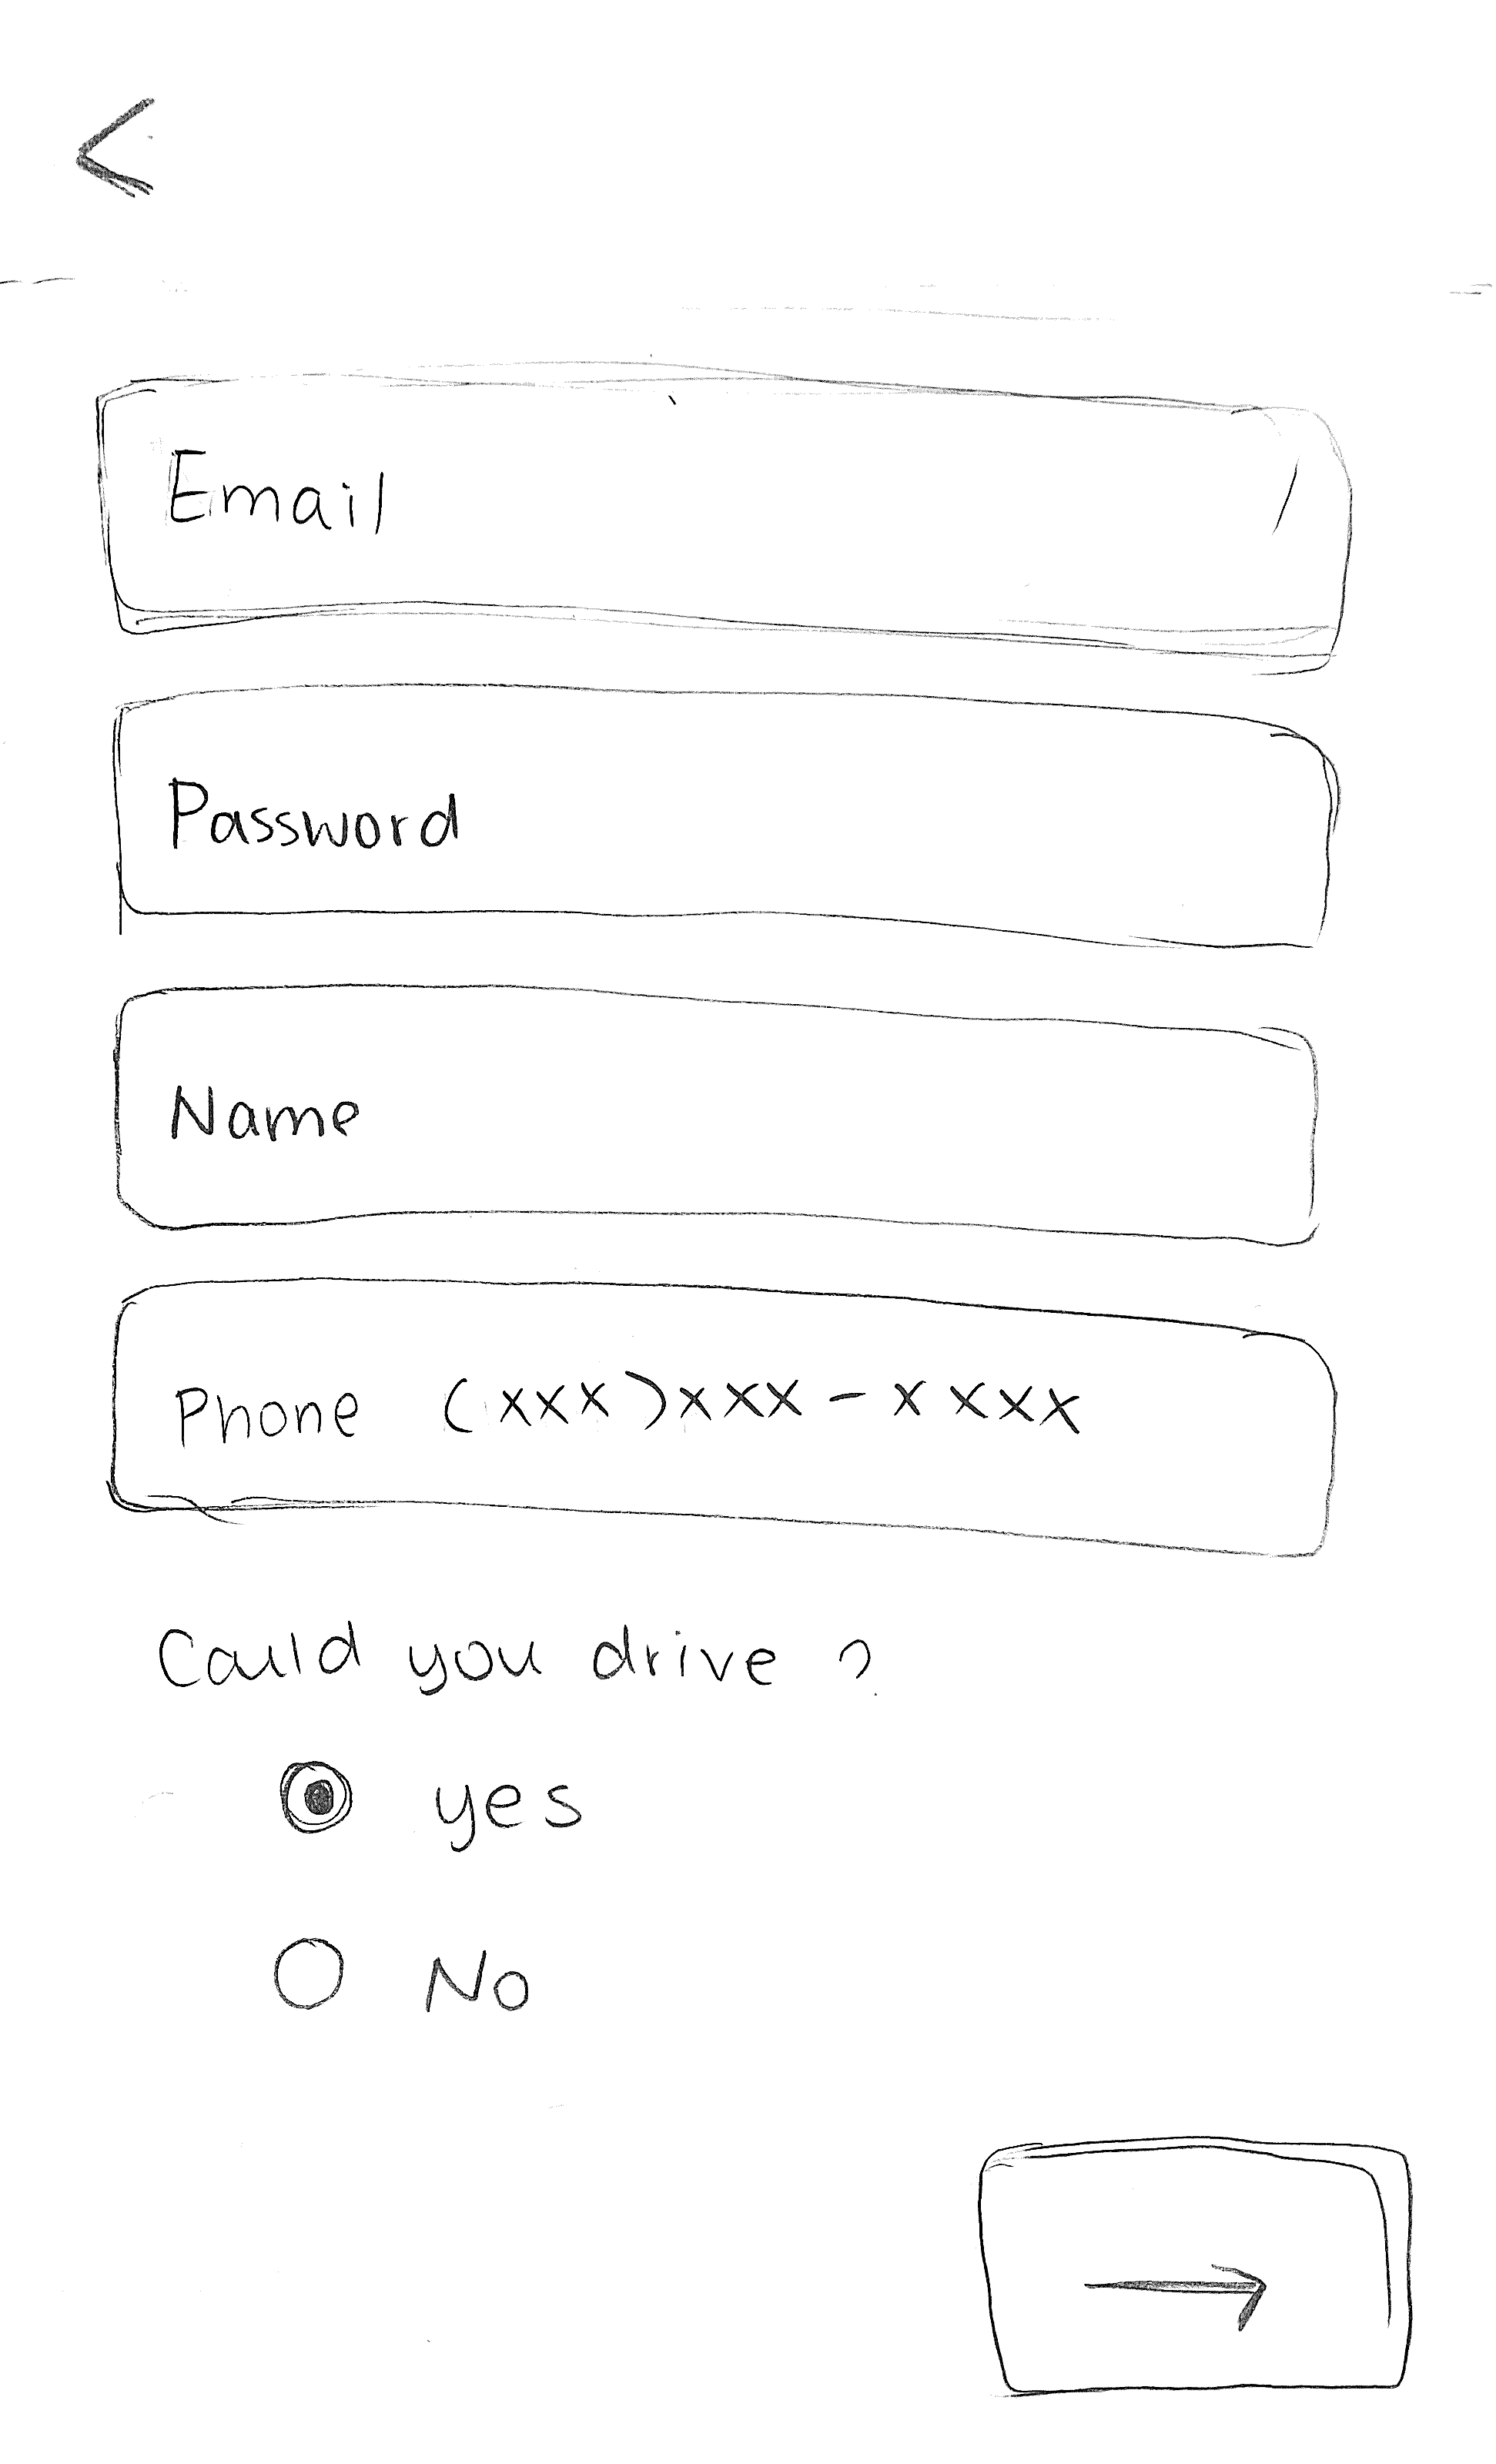 Email
Password
Name
Phone (xxx)xxx-xxxx
Could you drive ?
yes
No